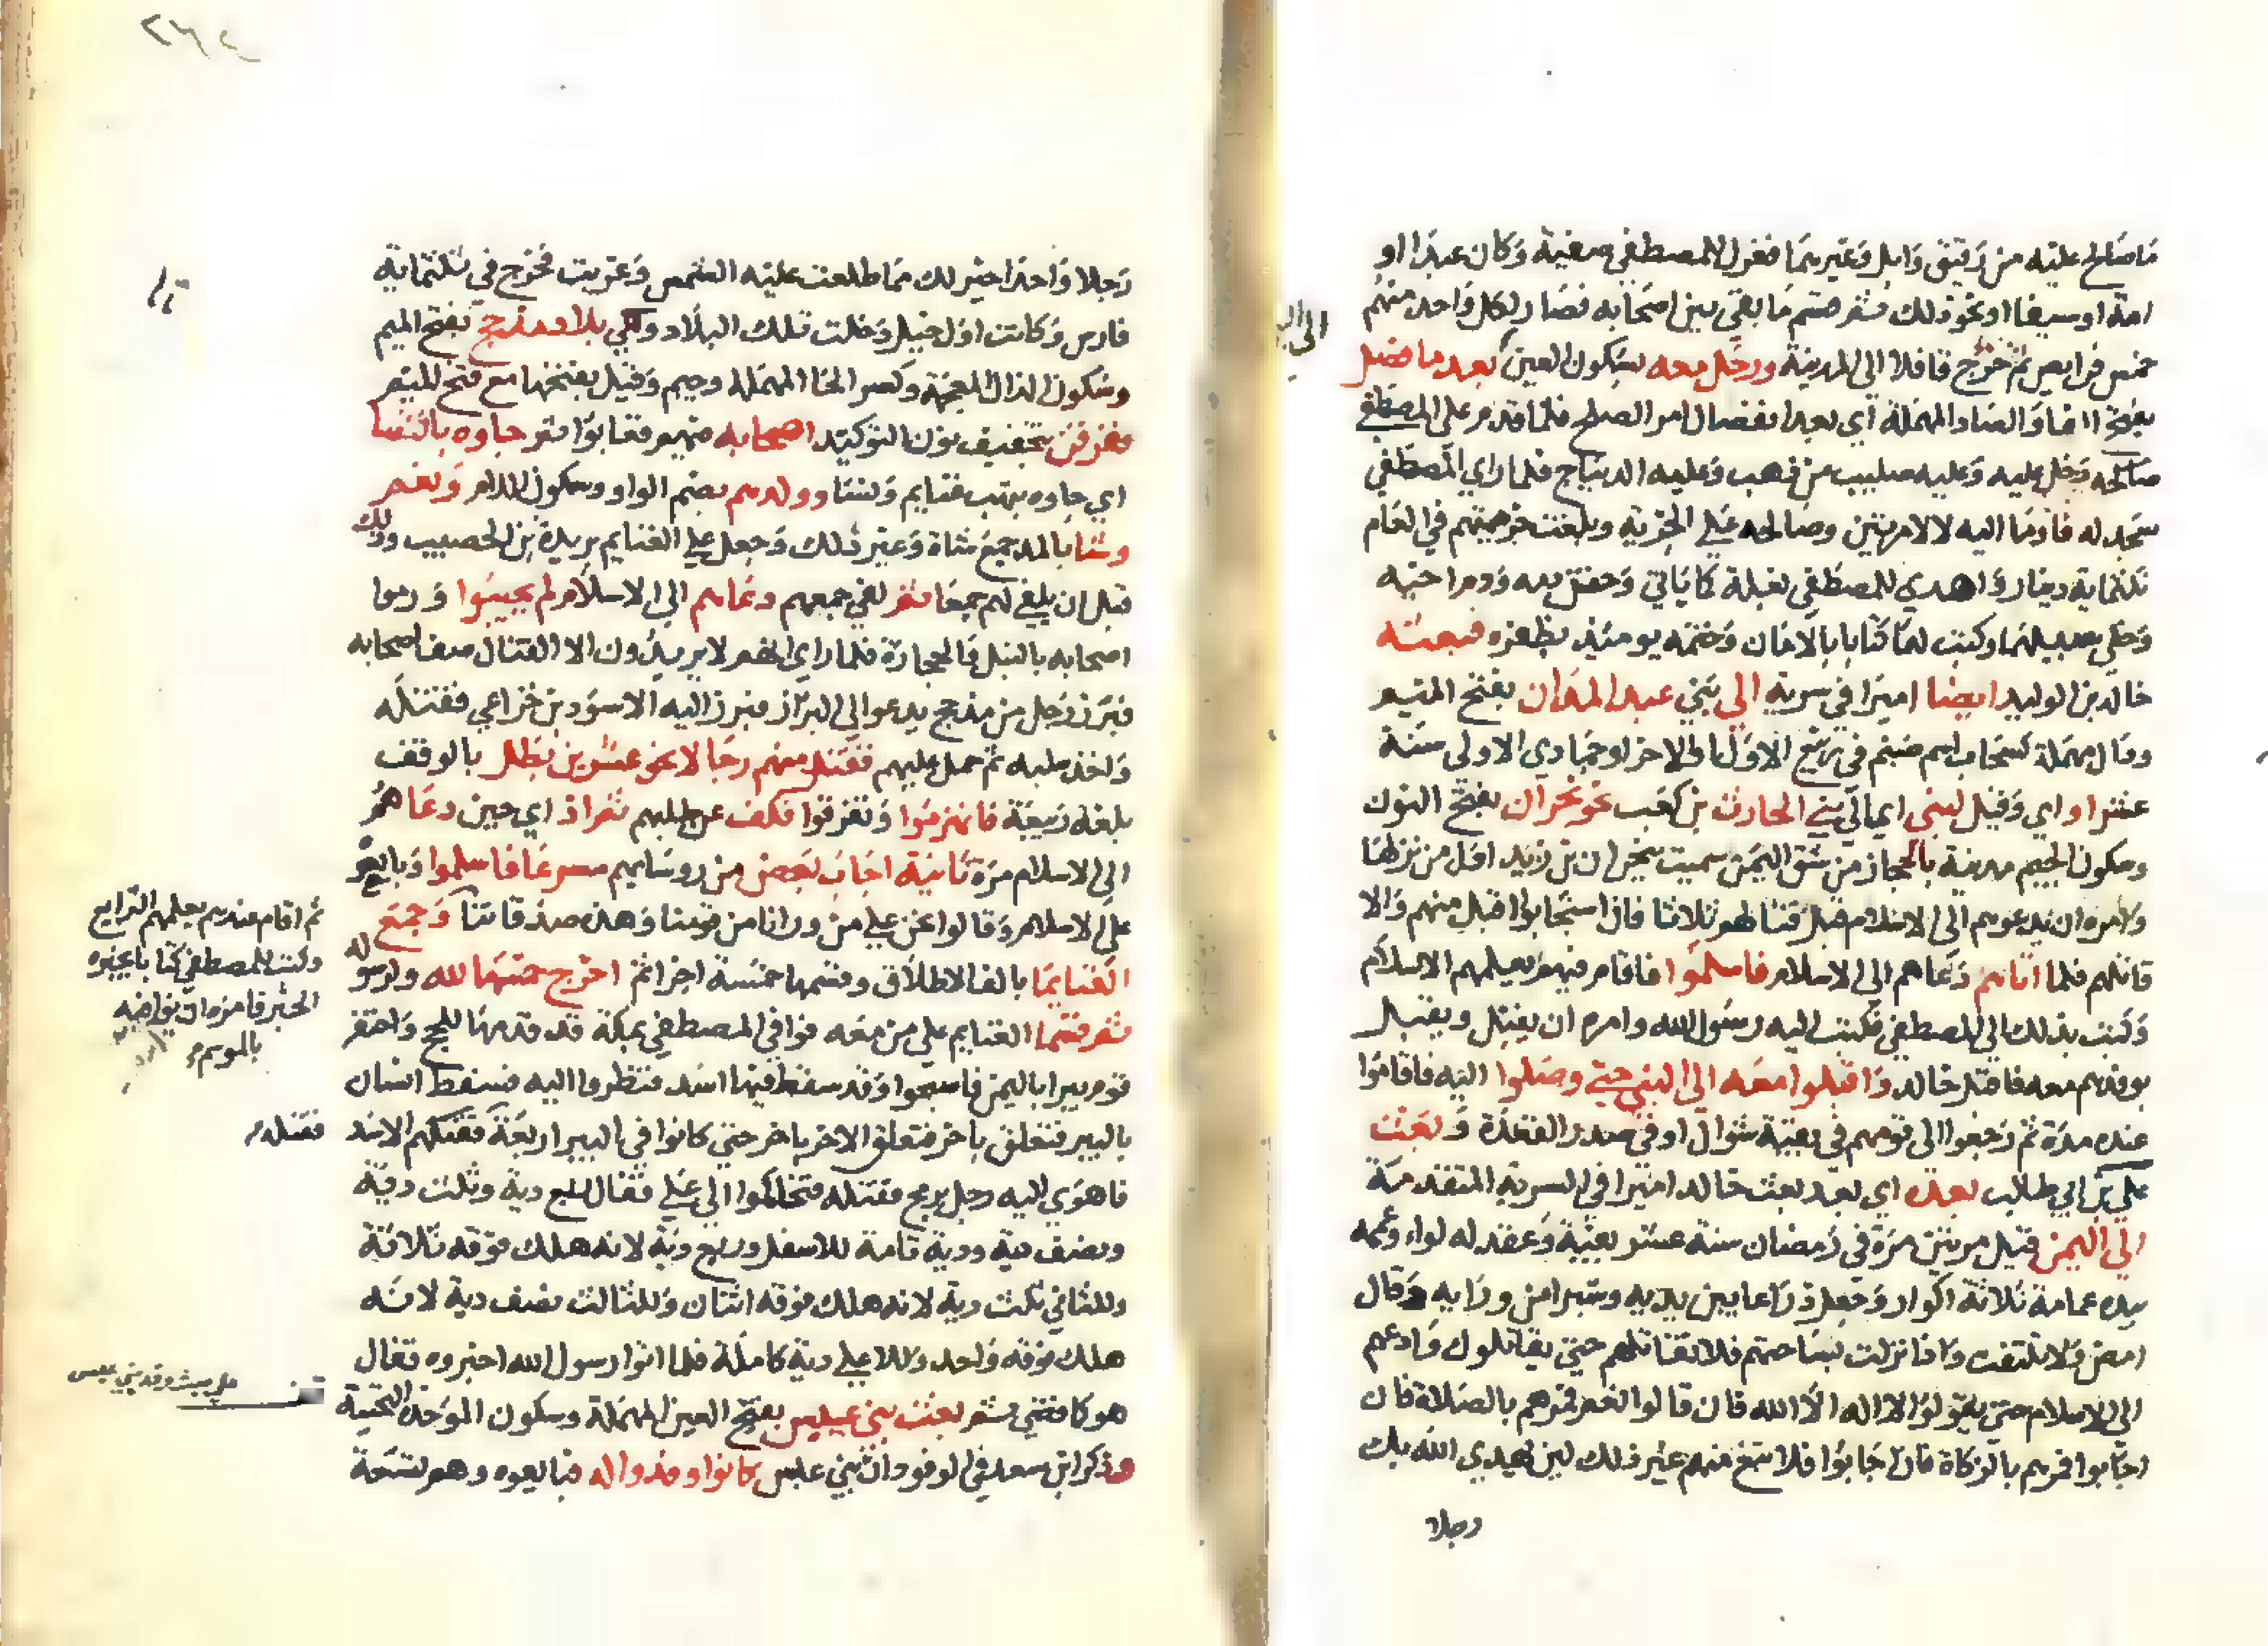 ما صالح عليه من رقيق وابل وغيرهما فعزل للمصطفى صفية وكان عبدا او
امة او سيفا او نحو ذلك ثم قسم ما بقي بين اصحابه فصار لكل واحد منهم
خمس فرايض ثم خرج قافلا الى المدينة ورجل معه بسكون العين بعد ما فصل
بفتح الفا والصاد المهملة اي بعد انفصال امر الصلح فلما قدم على المصطفى
صالحه ودخل عليه وعليه صليب من ذهب وعليه الديباج فلما راي المصطفى
سجد له فاومأ اليه لا لا مرتين وصالحه على الجزية وبلغت جزيتهم في العام
ثلثماية دينار واهدي للمصطفى بغلة كما ياتي وحقن دمه ودم اخيه
وخلى سبيلهما وكتب لهما كتابا بالامان وختمه يومئذ بظفره فبعثه
خالد بن الوليد ايضا اميرا في سرية الى بني عبد المدان بفتح الميم
ودال مهملة كسحاب اسم صنم في ربيع الاول او الاخر او جمادى الاولى سنة
عشر او اي وقيل لبني اي الى بني الحارث بن كعب نحو نجران بفتح النون
وسكون الجيم مدينة بالحجاز من شق اليمن سميت بنجران بن زيد اول من نزلها
وامره ان يدعوهم الى الاسلام قبل قتالهم ثلاثا فاذا استجابوا قبل منهم والا
قاتلهم فلما اتاهم دعاهم الى الاسلام فاسلموا فاقام فيهم يعلمهم الاسلام
وكتب بذلك الى المصطفى فكتب اليه رسول الله وامره ان يقبل ويقبل
بوفدهم معه فاقبل خالد واقبلوا معه الى النبي حتى وصلوا اليه فاقاموا
عنده مدة ثم رجعوا الى قومهم في بقية شوال او في صدر القعدة وبعث
علي بن ابي طالب بعده اي بعد بعث خالد اميرا في السرية المتقدمة
الى اليمن قيل مرتين مرة في رمضان سنة عشر بعثه وعقد له لواء وعممه
بيده عمامة ثلاثة اكوار وجعل ذراعا بين يديه وشبرا من ورايه وقال
امض ولا تلتفت واذا نزلت بساحتهم فلا تقاتلهم حتى يقاتلوك وادعهم
الى الاسلام حتى يقولوا لا اله الا الله فان قالوا نعم فمرهم بالصلاة فان
اجابوا فمرهم بالزكاة فان اجابوا فلا تبغ منهم غير ذلك لين يهدي الله بك
رجلا
رجلا واحدا خير لك مما طلعت عليه الشمس وغربت فخرج في ثلثماية
فارس وكانت اول خيل دخلت تلك البلاد وهي بلاد مذحج بفتح الميم
وسكون الذال المعجمة وكسر الحا المهملة وجيم وقيل بفتحها مع فتح الميم
ففرقن بتخفيف نون التوكيد اصحابه منهم فغابوا ثم جاوه بالنسا
اي جاوه بنهب غنايم ونسا وولدهم بضم الواو وسكون اللام ونعم
وشا بالمد جمع شاة وغير ذلك وجعل على الغنايم بريدة بن الحصيب وذلك
قبل ان يلقي لهم جمعا ثم لقي جمعهم ودعاهم الى الاسلام لم يجيبوا ورموا
اصحابه بالنبل والحجارة فلما راي انهم لا يريدون الا القتال صف اصحابه
فبرز رجل من مذحج يدعوا الى البراز فبرز اليه الاسود بن خزاعي فقتله
واخذ سلبه ثم حمل عليهم فقتل منهم رجالا نحو عشرين بطل بالوقف
بلغة ربيعة فانهزموا وتفرقوا فكف عن طلبهم ثم اذ اي حين دعاهم
الى الاسلام مرة ثانية اجاب بعض من روسايهم مسرعا فاسلموا وبايعوه
على الاسلام وقالوا نحن على من وراءنا من قومنا وهذه صدقاتنا وجمع
الغنايما بالف الاطلاق وقسمها خمسة اجزا ثم اخرج خمسها لله ولرسوله
ثم قسما الغنايم على من معه فوافي المصطفى بمكة قد قدمها للحج واحتفر
قوم بيرا باليمن فاصبحوا وقد سقط فيها اسد فنظروا اليه فسقط انسان
بالبير فتعلق باخر فتعلق الاخر باخر حتى كانوا في البير اربعة فقتلهم الاسد
فاهوي اليه رجل برمح فقتله فتحاكموا الى علي فقال ربع دية وثلث دية
ونصف دية ودية تامة للاسفل وربع دية لانه هلك فوقه ثلاثة
وللثاني ثلث دية لانه هلك فوقه اثنان وللثالث نصف دية لانه
هلك فوقه واحد وللاعلى دية كاملة فلما اتوا رسول الله اخبروه فقال
هو كما قضي ثم بعث بني عبس بفتح العين المهملة وسكون الموحدة التحتية
هذكر ابن سعد في الوفود ان بني عبس كانوا وفدوا له فبايعوه وهم تسعة
ثم اقام عندهم يعلمهم الشرايع
وكتب للمصطفى كتابا يخبره
الخبر فامره ان يوافيه
بالموسم
فقتله